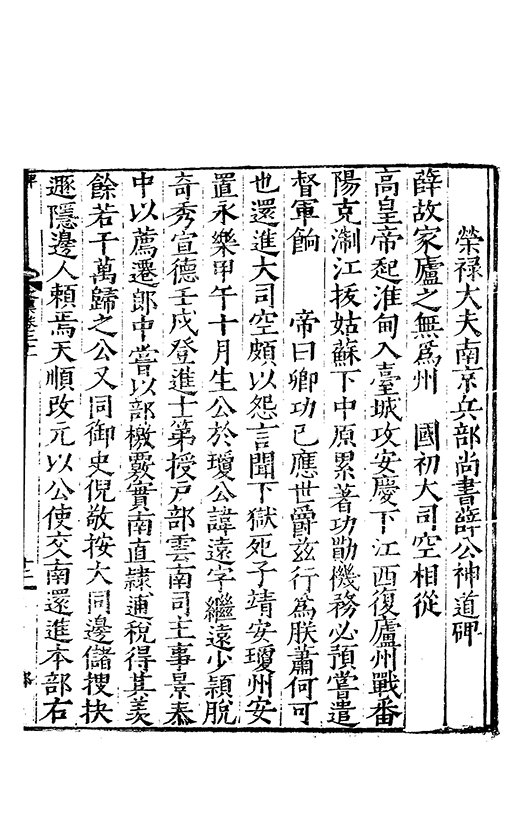 榮禄大夫南京兵部尚書薛公神道碑
薛故家廬之無爲州 國初大司空相從
高皇帝起淮甸入臺城攻安慶下江西復廬州戰番
陽克淛江拔姑蘇下中原累著功勛機務必預嘗遣
督軍餉 帝曰卿功已應世爵兹行爲朕蕭何可
也還進大司空頗以怨言聞下獄死子靖安瓊州安
置永樂甲午十月生公於瓊公諱遠字繼遠少穎脫
奇秀宣德壬戌登進士第授戸部雲南司主事景泰
中以薦遷郎中嘗以部檄覈實南直隷逋稅得其羡
餘若干萬歸之公又同御史倪敬按大同邊儲搜抉
遯隱邊人頼焉天順改元以公使交南還進本部右